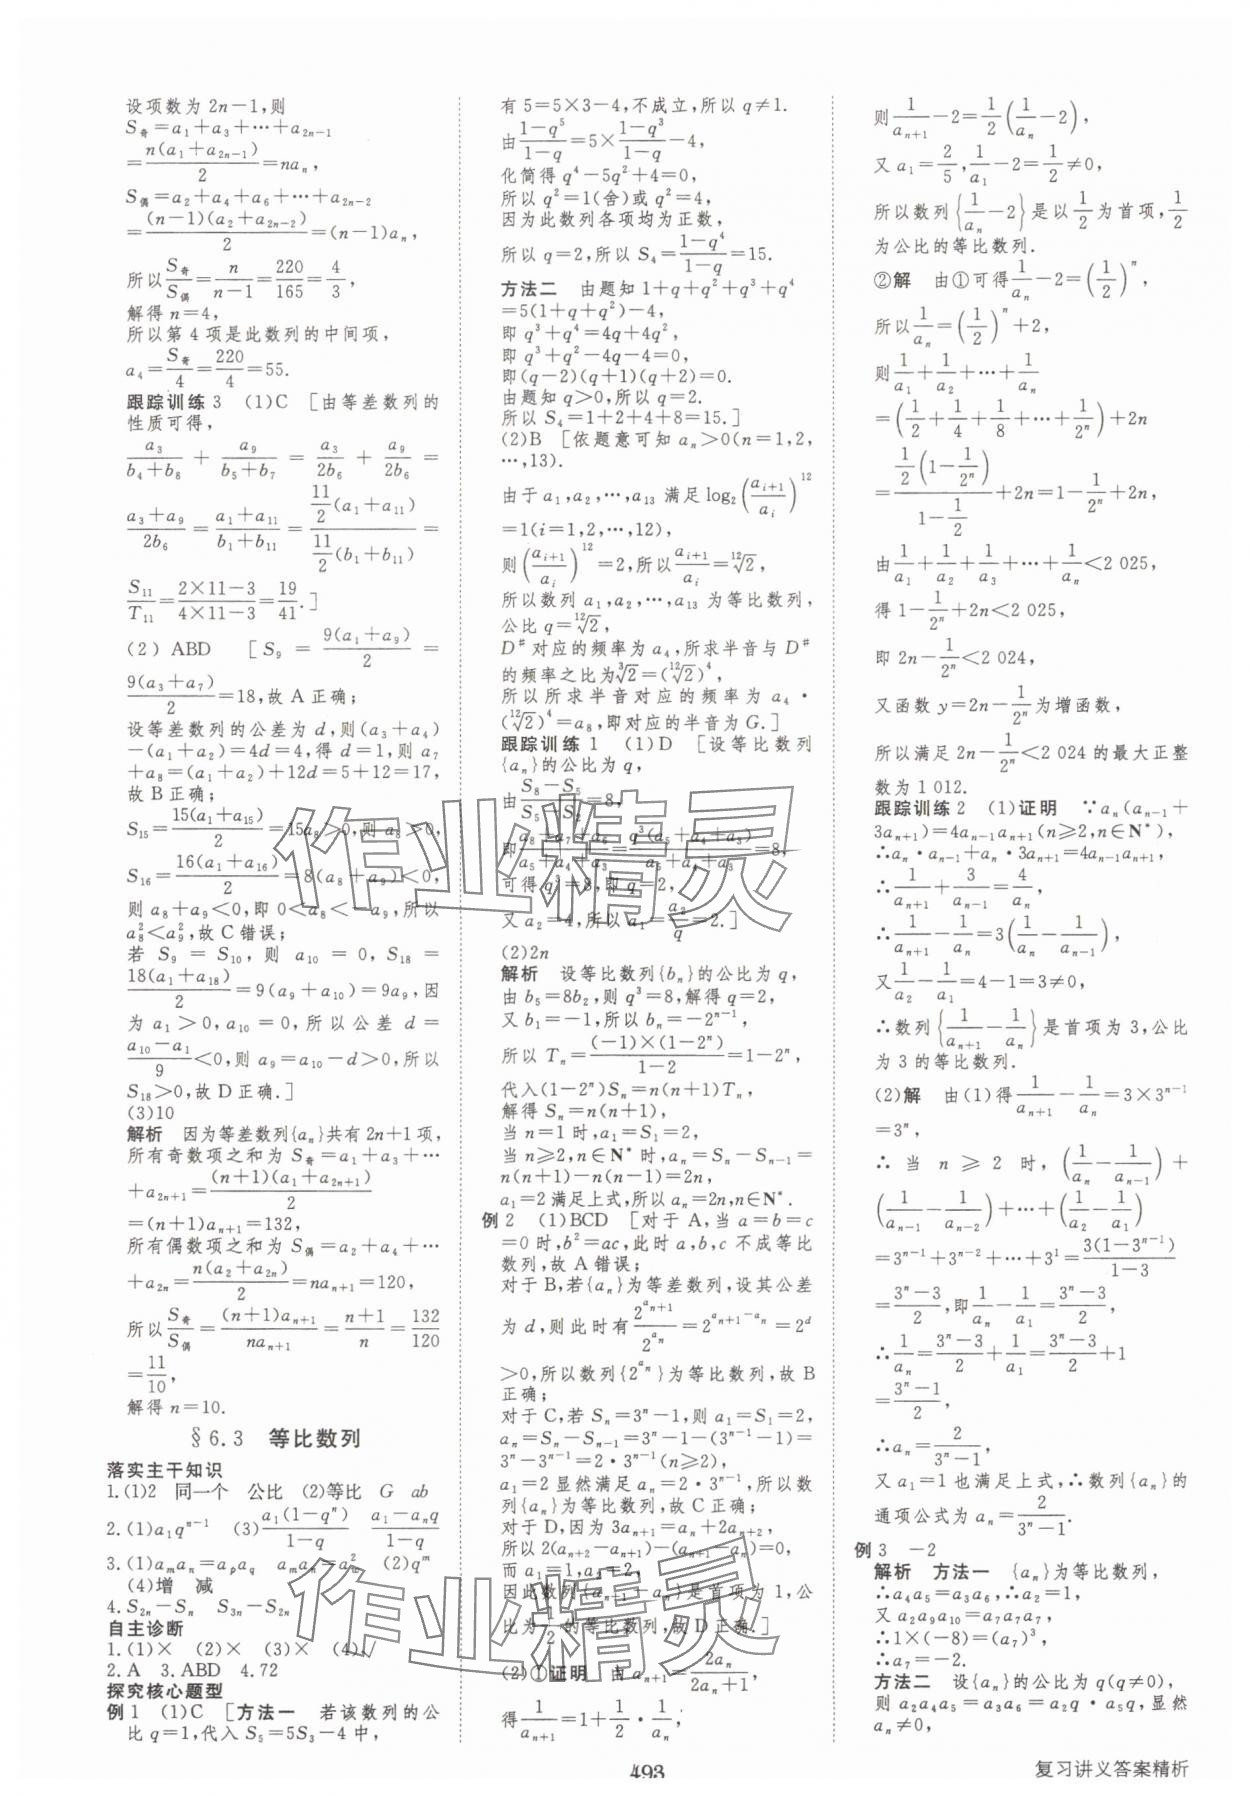 设项数为 2n-1,则
S奇=a₁+a₃+…+a₂ₙ₋₁
=n(a₁+a₂ₙ₋₁)/2=naₙ,
S偶=a₂+a₄+a₆+…+a₂ₙ₋₂
=(n-1)(a₂+a₂ₙ₋₂)/2=(n-1)aₙ,
所以S奇/S偶=n/(n-1)=220/165=4/3,
解得 n=4,
所以第 4 项是此数列的中间项,
a₄=S奇/4=220/4=55.
跟踪训练 3 (1)C [由等差数列的
性质可得,
a₃/(b₄+b₈) + a₉/(b₅+b₇) = a₃/(2b₆) + a₉/(2b₆) =
(a₃+a₉)/(2b₆) = (a₁+a₁₁)/(b₁+b₁₁) = (11/2(a₁+a₁₁))/(11/2(b₁+b₁₁)) =
S₁₁/T₁₁=(2×11-3)/(4×11-3)=19/41.]
(2) ABD [S₉ = 9(a₁+a₉)/2 =
9(a₃+a₇)/2=18,故 A 正确;
设等差数列的公差为 d,则(a₃+a₄)
-(a₁+a₂)=4d=4,得 d=1,则 a₇
+a₈=(a₁+a₂)+12d=5+12=17,
故 B 正确;
S₁₅=15(a₁+a₁₅)/2=15a₈>0,则 a₈>0,
S₁₆=16(a₁+a₁₆)/2=8(a₈+a₉)<0,
则 a₈+a₉<0,即 0<a₈<-a₉,所以
a₈²<a₉²,故 C 错误;
若 S₉ = S₁₀,则 a₁₀ = 0, S₁₈ =
18(a₁+a₁₈)/2=9(a₉+a₁₀)=9a₉,因
为 a₁>0,a₁₀=0,所以公差 d=
(a₁₀-a₁)/9<0,则 a₉=a₁₀-d>0,所以
S₁₈>0,故 D 正确.]
(3)10
解析 因为等差数列{aₙ}共有 2n+1 项,
所有奇数项之和为 S奇=a₁+a₃+…
+a₂ₙ₊₁=(n+1)(a₁+a₂ₙ₊₁)/2
=(n+1)aₙ₊₁=132,
所有偶数项之和为 S偶=a₂+a₄+…
+a₂ₙ=n(a₂+a₂ₙ)/2=naₙ₊₁=120,
所以S奇/S偶=(n+1)aₙ₊₁/(naₙ₊₁)=(n+1)/n=132/120
=11/10,
解得 n=10.
§6.3 等比数列
落实主干知识
1.(1)2 同一个 公比 (2)等比 G ab
2.(1)a₁qⁿ⁻¹ (3)a₁(1-qⁿ)/(1-q) (a₁-aₙq)/(1-q)
3.(1)aₘaₙ=aₚa_q aₘaₙ=a_w² (2)qᵐ
(4)增 减
4.S₂ₙ-Sₙ S₃ₙ-S₂ₙ
自主诊断
1.(1)× (2)× (3)× (4)√
2.A 3.ABD 4.72
探究核心题型
例 1 (1)C [方法一 若该数列的公
比 q=1,代入 S₅=5S₃-4 中,
有 5=5×3-4,不成立,所以 q≠1.
由(1-q⁵)/(1-q)=5×(1-q³)/(1-q)-4,
化简得 q⁴-5q²+4=0,
所以 q²=1(舍)或 q²=4,
因为此数列各项均为正数,
所以 q=2,所以 S₄=(1-q⁴)/(1-q)=15.
方法二 由题知 1+q+q²+q³+q⁴
=5(1+q+q²)-4,
即 q³+q⁴=4q+4q²,
即 q³+q²-4q-4=0,
即(q-2)(q+1)(q+2)=0.
由题知 q>0,所以 q=2.
所以 S₄=1+2+4+8=15.]
(2)B [依题意可知 aₙ>0(n=1,2,
…,13).
由于 a₁,a₂,…,a₁₃ 满足 log₂(aᵢ₊₁/aᵢ)¹²
=1(i=1,2,…,12),
则(aᵢ₊₁/aᵢ)¹²=2,所以aᵢ₊₁/aᵢ=¹²√2,
所以数列 a₁,a₂,…,a₁₃ 为等比数列,
公比 q=¹²√2,
D♯对应的频率为 a₄,所求半音与 D♯
的频率之比为³√2=(¹²√2)⁴,
所以所求半音对应的频率为 a₄·
(¹²√2)⁴=a₈,即对应的半音为 G.]
跟踪训练 1 (1)D [设等比数列
{aₙ}的公比为 q,
由(S₈-S₅)/(S₅-S₂)=8,
即(a₈+a₇+a₆)/(a₅+a₄+a₃)=q³(a₅+a₄+a₃)/(a₅+a₄+a₃)=8,
可得 q³=8,即 q=2,
又 a₂=4,所以 a₁=a₂/q=2.]
(2)2n
解析 设等比数列{bₙ}的公比为 q,
由 b₅=8b₂,则 q³=8,解得 q=2,
又 b₁=-1,所以 bₙ=-2ⁿ⁻¹,
所以 Tₙ=(-1)×(1-2ⁿ)/(1-2)=1-2ⁿ,
代入(1-2ⁿ)Sₙ=n(n+1)Tₙ,
解得 Sₙ=n(n+1),
当 n=1 时,a₁=S₁=2,
当 n≥2,n∈N*时,aₙ=Sₙ-Sₙ₋₁=
n(n+1)-n(n-1)=2n,
a₁=2 满足上式,所以 aₙ=2n,n∈N*.
例 2 (1)BCD [对于 A,当 a=b=c
=0 时,b²=ac,此时 a,b,c 不成等比
数列,故 A 错误;
对于 B,若{aₙ}为等差数列,设其公差
为 d,则此时有 2^(aₙ₊₁)/2^(aₙ)=2^(aₙ₊₁-aₙ)=2ᵈ
>0,所以数列{2^(aₙ)}为等比数列,故 B
正确;
对于 C,若 Sₙ=3ⁿ-1,则 a₁=S₁=2,
aₙ=Sₙ-Sₙ₋₁=3ⁿ-1-(3ⁿ⁻¹-1)=
3ⁿ-3ⁿ⁻¹=2·3ⁿ⁻¹(n≥2),
a₁=2 显然满足 aₙ=2·3ⁿ⁻¹,所以数
列{aₙ}为等比数列,故 C 正确;
对于 D,因为 3aₙ₊₁=aₙ+2aₙ₊₂,
所以 2(aₙ₊₂-aₙ₊₁)-(aₙ₊₁-aₙ)=0,
而 a₁=1,a₂=,
因此数列{aₙ₊₁-aₙ}是首项为 1,公
比为1/2的等比数列,故 D 正确.]
(2)①证明 由 aₙ₊₁=2aₙ/(2aₙ+1),
得1/aₙ₊₁=1+1/2·1/aₙ,
则1/aₙ₊₁-2=1/2(1/aₙ-2),
又 a₁=2/5,1/a₁-2=1/2≠0,
所以数列{1/aₙ-2}是以1/2为首项,1/2
为公比的等比数列.
②解 由①可得1/aₙ-2=(1/2)ⁿ,
所以1/aₙ=(1/2)ⁿ+2,
则1/a₁+1/a₂+…+1/aₙ
=(1/2+1/4+1/8+…+1/2ⁿ)+2n
=(1/2(1-1/2ⁿ))/(1-1/2)+2n=1-1/2ⁿ+2n,
由1/a₁+1/a₂+1/a₃+…+1/aₙ<2 025,
得 1-1/2ⁿ+2n<2 025,
即 2n-1/2ⁿ<2 024,
又函数 y=2n-1/2ⁿ为增函数,
所以满足 2n-1/2ⁿ<2 024 的最大正整
数为 1 012.
跟踪训练 2 (1)证明 ∵aₙ(aₙ₋₁+
3aₙ₊₁)=4aₙ₋₁aₙ₊₁(n≥2,n∈N*),
∴aₙ·aₙ₋₁+aₙ·3aₙ₊₁=4aₙ₋₁aₙ₊₁,
∴1/aₙ₊₁+3/aₙ₋₁=4/aₙ,
∴1/aₙ₊₁-1/aₙ=3(1/aₙ-1/aₙ₋₁),
又1/a₂-1/a₁=4-1=3≠0,
∴数列{1/aₙ₊₁-1/aₙ}是首项为 3,公比
为 3 的等比数列.
(2)解 由(1)得1/aₙ₊₁-1/aₙ=3×3ⁿ⁻¹
=3ⁿ,
∴当 n≥2 时,(1/aₙ-1/aₙ₋₁)+
(1/aₙ₋₁-1/aₙ₋₂)+…+(1/a₂-1/a₁)
=3ⁿ⁻¹+3ⁿ⁻²+…+3¹=3(1-3ⁿ⁻¹)/(1-3)
=(3ⁿ-3)/2,即1/aₙ-1/a₁=(3ⁿ-3)/2,
∴1/aₙ=(3ⁿ-3)/2+1/a₁=(3ⁿ-3)/2+1
=(3ⁿ-1)/2,
∴aₙ=2/(3ⁿ-1),
又 a₁=1 也满足上式,∴数列{aₙ}的
通项公式为 aₙ=2/(3ⁿ-1).
例 3 -2
解析 方法一 {aₙ}为等比数列,
∴a₄a₅=a₃a₆,∴a₂=1,
又 a₂a₉a₁₀=a₇a₇a₇,
∴1×(-8)=(a₇)³,
∴a₇=-2.
方法二 设{aₙ}的公比为 q(q≠0),
则 a₂a₄a₅=a₃a₆=a₂q·a₅q,显然
aₙ≠0,
作业精灵
作业精灵
493
复习讲义答案精析